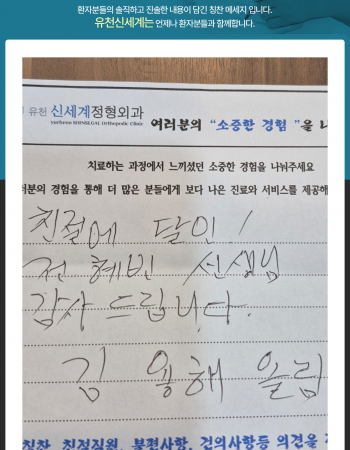 환자분들의 솔직하고 진솔한 내용이 담긴 칭찬 메세지 입니다.
유천신세계는 언제나 환자분들과 함께합니다.
유천 신세계정형외과
yucheon SHINSEGAE Orthopedic Clinic
여러분의 "소중한 경험"을 나
치료하는 과정에서 느끼셨던 소중한 경험을 나눠주세요
러분의 경험을 통해 더 많은 분들에게 보다 나은 진료와 서비스를 제공해
친절에 달인!
전혜빈 선생님
감사드립니다.
김용해 올림
칭찬, 친절직원, 불편사항, 건의사항등 의견을